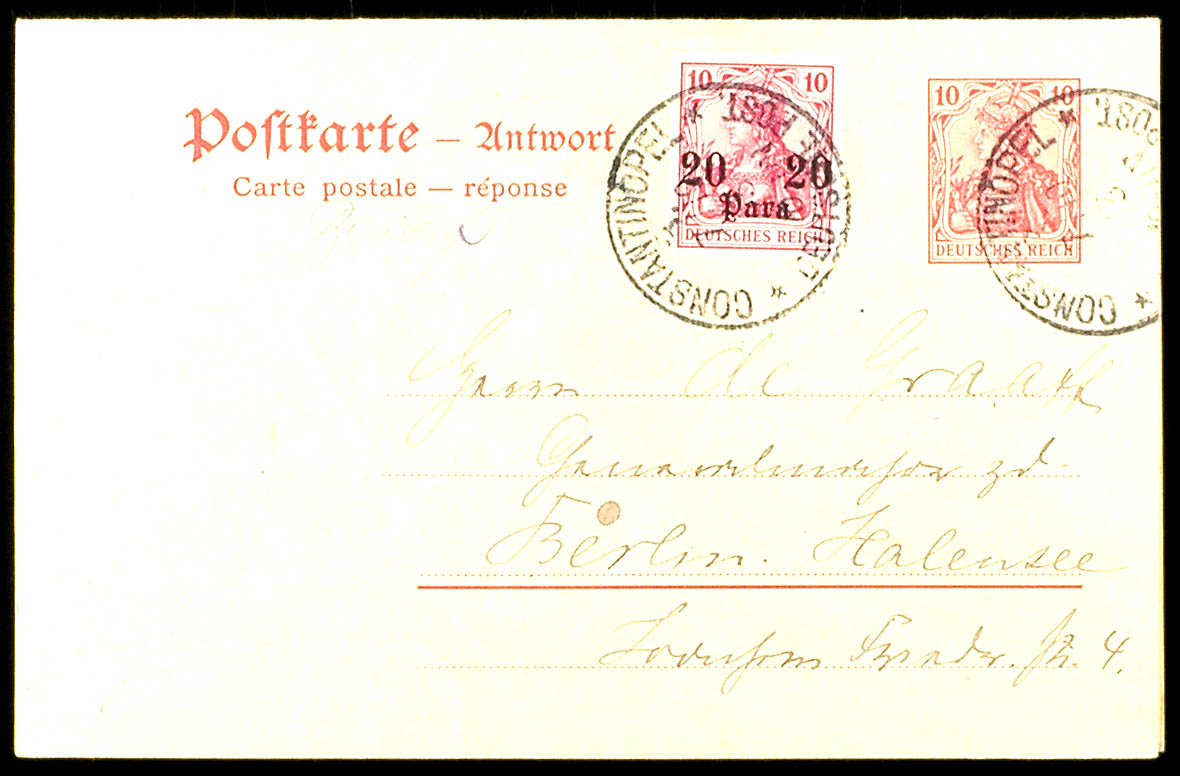 Postkarte – Antwort
Carte postale – réponse
10 10
20 20
Para
DEUTSCHES REICH
CONSTANTINOPEL * DEUTSCHE POST *
10 10
DEUTSCHES REICH
CONSTANTINOPEL * POST *
Herrn de Graaff
Generalmajor zd
Berlin. Halensee
Friedr. 4.